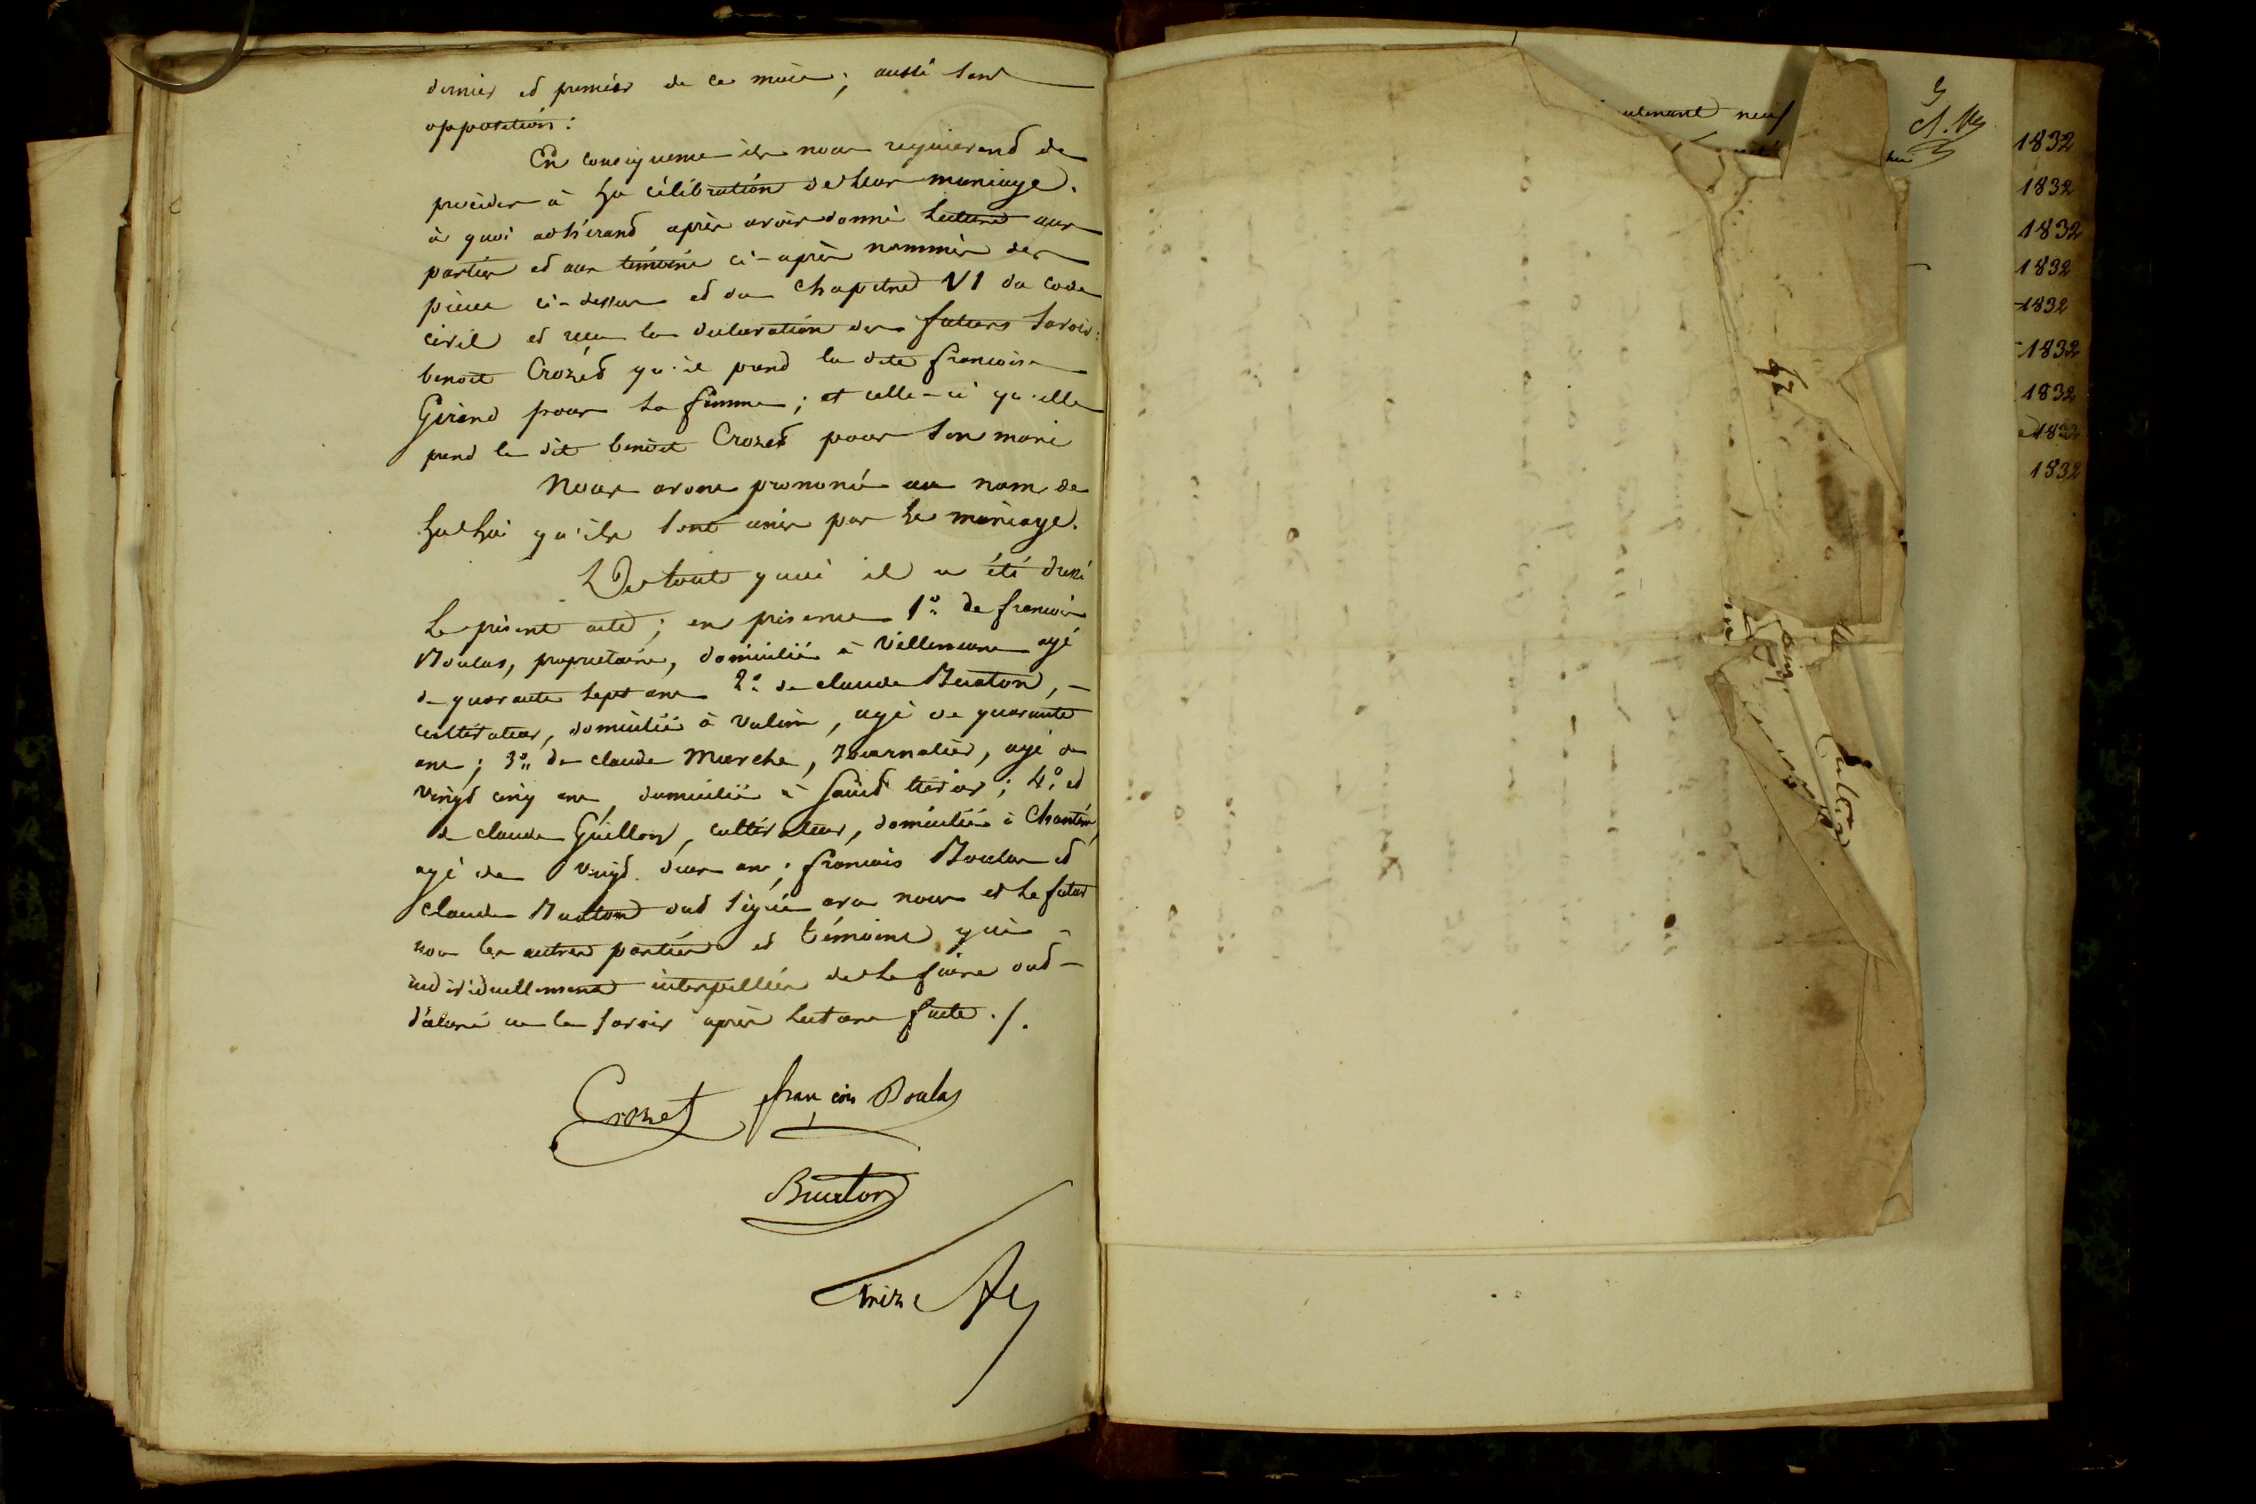 dernier et premier de ce mois; aussi sans
opposition:
En conséquence ils nous requierend de
proceder à la célébration de leur mariage.
à quoi adhérand après avoir donné lecture aux
parties et aux témoins ci-après nommés des
pièces ci-dessus et du Chapitre VI du Code
civil et reçu la declaration des futurs savoir:
benoit Crozet qu'il prend la dite francoise
Girand pour sa femme; et celle-ci qu'elle
prend le dit benoit Crozet pour son mari
Nous avons prononcé au nom de
la loi qu'ils sont unis par le mariage.
De tout quoi il a été dressé
le présent acte; en présence 1° de francois
Boulas, propriétaire, domicilié à Villemure agé
de quarante sept ans 2° de claude Buaton,
cultivateur, domicilié à , agé de quarante
ans; 3° de claude Murche, Journalier, agé de
vingt cinq ans, domicilié à ; 4° et
de claude Guillon, cultivateur, domicilié à
agé de vingt deux ans; francois Boulas et
claude Buaton ont signé avec nous et le futur
non les autres parties et témoins qui
individuellement interpellés de le faire ont
déclaré ne le savoir après lecture faite ./.
Crozet françois Boulas
Buaton
ulement neuf
1832
1832
1832
1832
1832
1832
1832
1832
1832